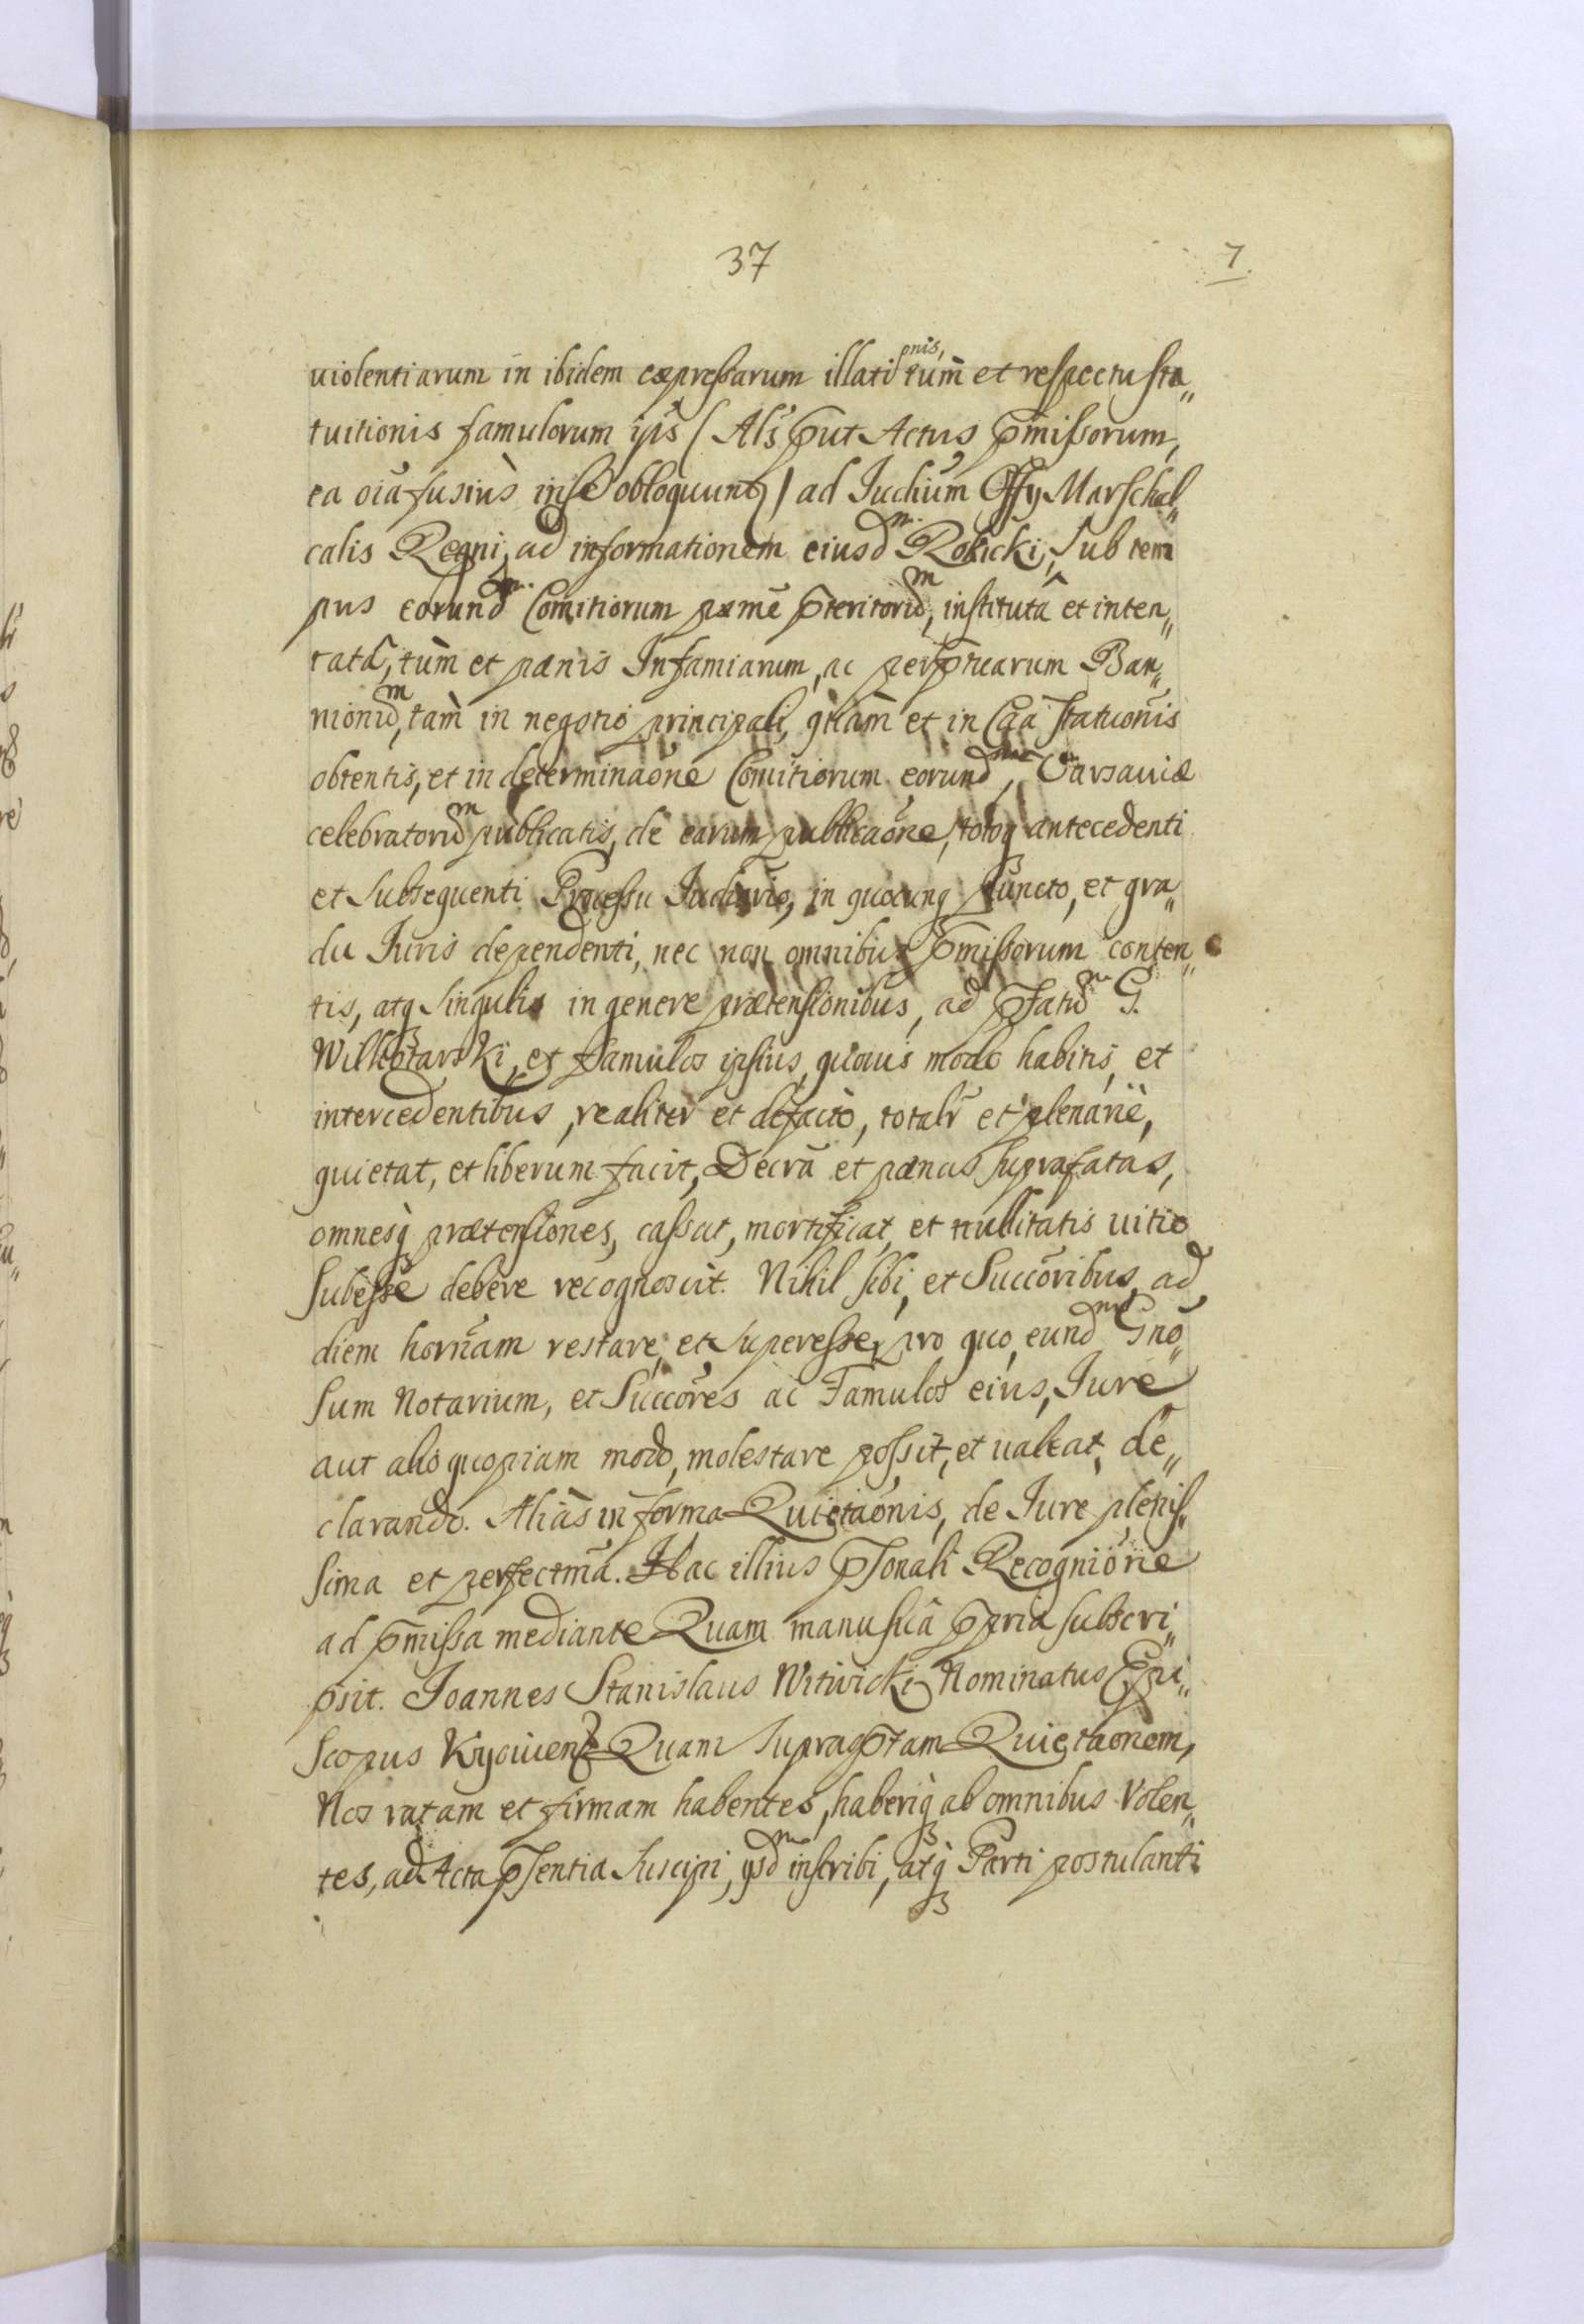 37
7.
uiolentiarum in ibidem expressarum illati onis, tum et respectu sta„
tuitionis famulorum ips̃ / Als̃ p̃ut Actus p̃missorum,
ea oĩa fusiùs in se obloquunt / ad Iudiũm Offij Marschal„
calis Regni, ad informationem eiusdm. Rokicki, sub tem
pus eorundm. Comitiorum pxme p̃teritorum, institutâ et inten„
tatâ, tùm et pænis Infamiarum, ac perp̃tuarum Ban„
nionum, tàm in negotio principali, quàm et in Cãa statuõnis
obtentis, et in determinaõne Comitiorum eorundm, Varsauiæ
celebratorum publicatis, de earum publicaõne, totoq antecedenti
et subsequenti Processu Iudiãrio, in quocunq puncto, et gra„
du Iuris dependenti, nec non omnibus p̃missorum conten„
tis, atq singulis in genere prætensionibus, ad p̃fatum G.
et famulos ipsius, quouis modo habitis, et
intercedentibus, realiter et defacto, totalr̃ et plenariè,
quietat, et liberum facit, Decrã et pænas suprafatas,
omnesq̀ prætensiones, cassat, mortificat, et nullitatis uitio
subesse debere recognoscit. Nihil sibi, et Succõribus, ad
diem hornãm restare, et superesse, pro quo, eundm Gnõ„
sum Notarium, et Succõres ac Famulos eius, Iure
aut alio quopiam modo, molestare possit, et ualeat, de„
clarando. Aliàs in forma Quietaõnis, de Iure plenis„
sima et perfectmã. Hac illius p̃sonali Recogniõne
ad p̃missa mediante Quam manu suâ p̃pria subscri„
psit. Joannes Stanislaus Witwicki Nominatus Epi„
scopus Kyouien Quam suprap̃tam Quietaõnem,
Nos ratam et firmam habentes, haberiq̀ ab omnibus Volen„
tes, ad Acta p̃sentia suscipi, ijsdm inscribi, atq̀ Parti postulanti